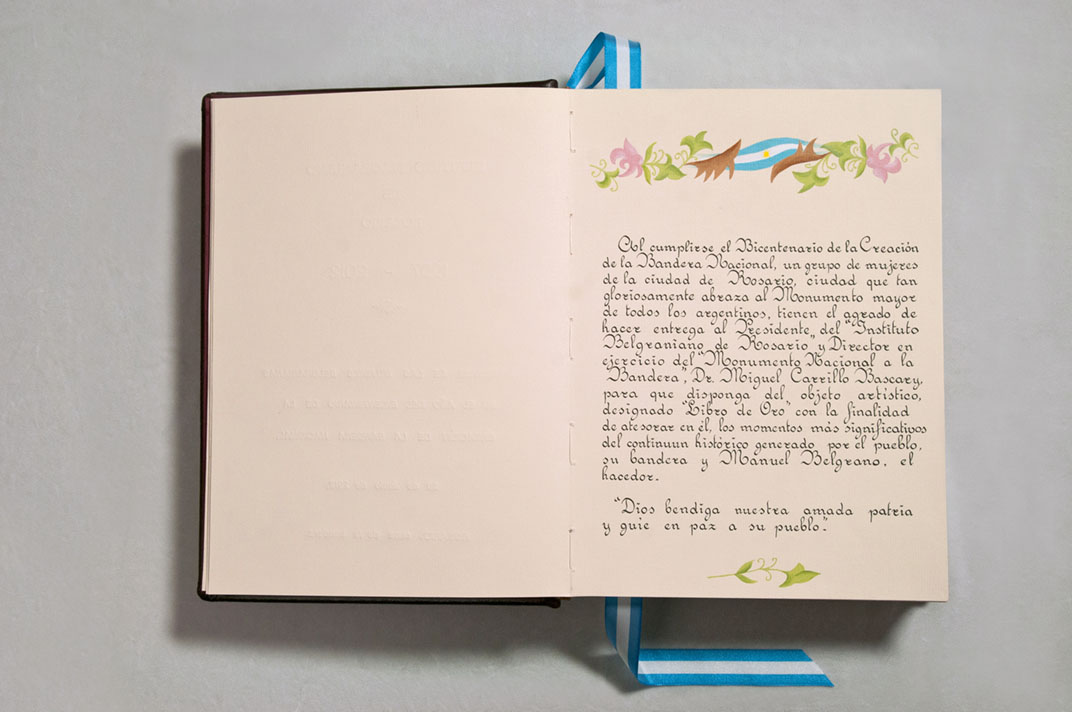 Al cumplirse el Bicentenario de la Creación
de la Bandera Nacional, un grupo de mujeres
de la ciudad de Rosario, ciudad que tan
gloriosamente abraza al Monumento mayor
de todos los argentinos, tienen el agrado de
hacer entrega al Presidente del "Instituto
Belgraniano de Rosario" y Director en
ejercicio del "Monumento Nacional a la
Bandera", Dr. Miguel Carrillo Bascary,
para que disponga del objeto artístico,
designado "Libro de Oro" con la finalidad
de atesorar en él, los momentos más significativos
del continuun histórico generado por el pueblo,
su bandera y Manuel Belgrano, el
hacedor.
"Dios bendiga nuestra amada patria
y guíe en paz a su pueblo".